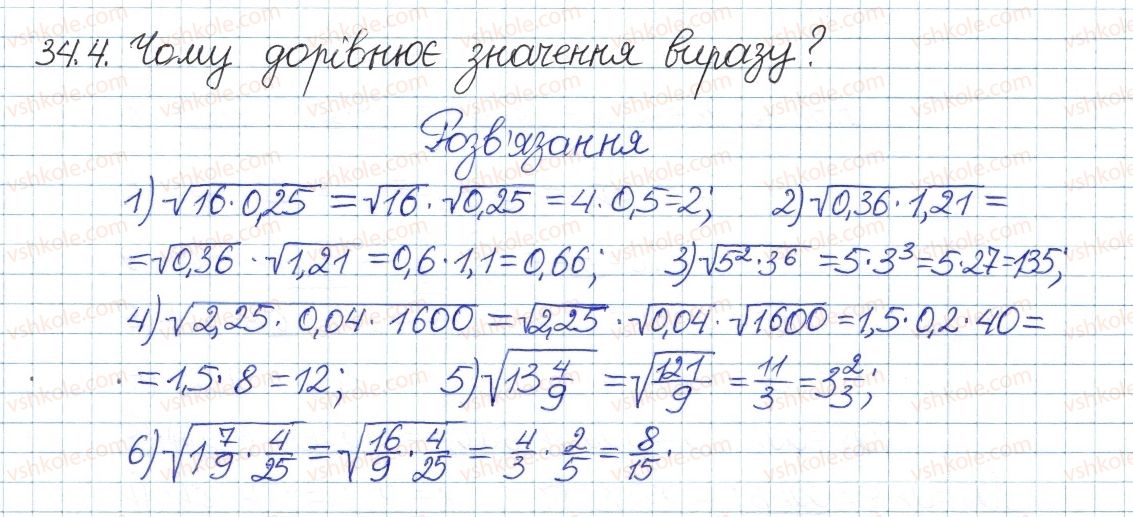 34.4. Чому дорівнює значення виразу?
Розв'язання
1) √16·0,25 = √16·√0,25 = 4·0,5=2; 2) √0,36·1,21 =
= √0,36 · √1,21 = 0,6·1,1 = 0,66; 3) √5²·3⁶ = 5·3³ = 5·27 = 135;
4) √2,25·0,04·1600 = √2,25·√0,04·√1600 = 1,5·0,2·40 =
= 1,5·8 = 12; 5) √13 4/9 = √121/9 = 11/3 = 3 2/3;
6) √1 7/9 · 4/25 = √16/9 · 4/25 = 4/3 · 2/5 = 8/15.